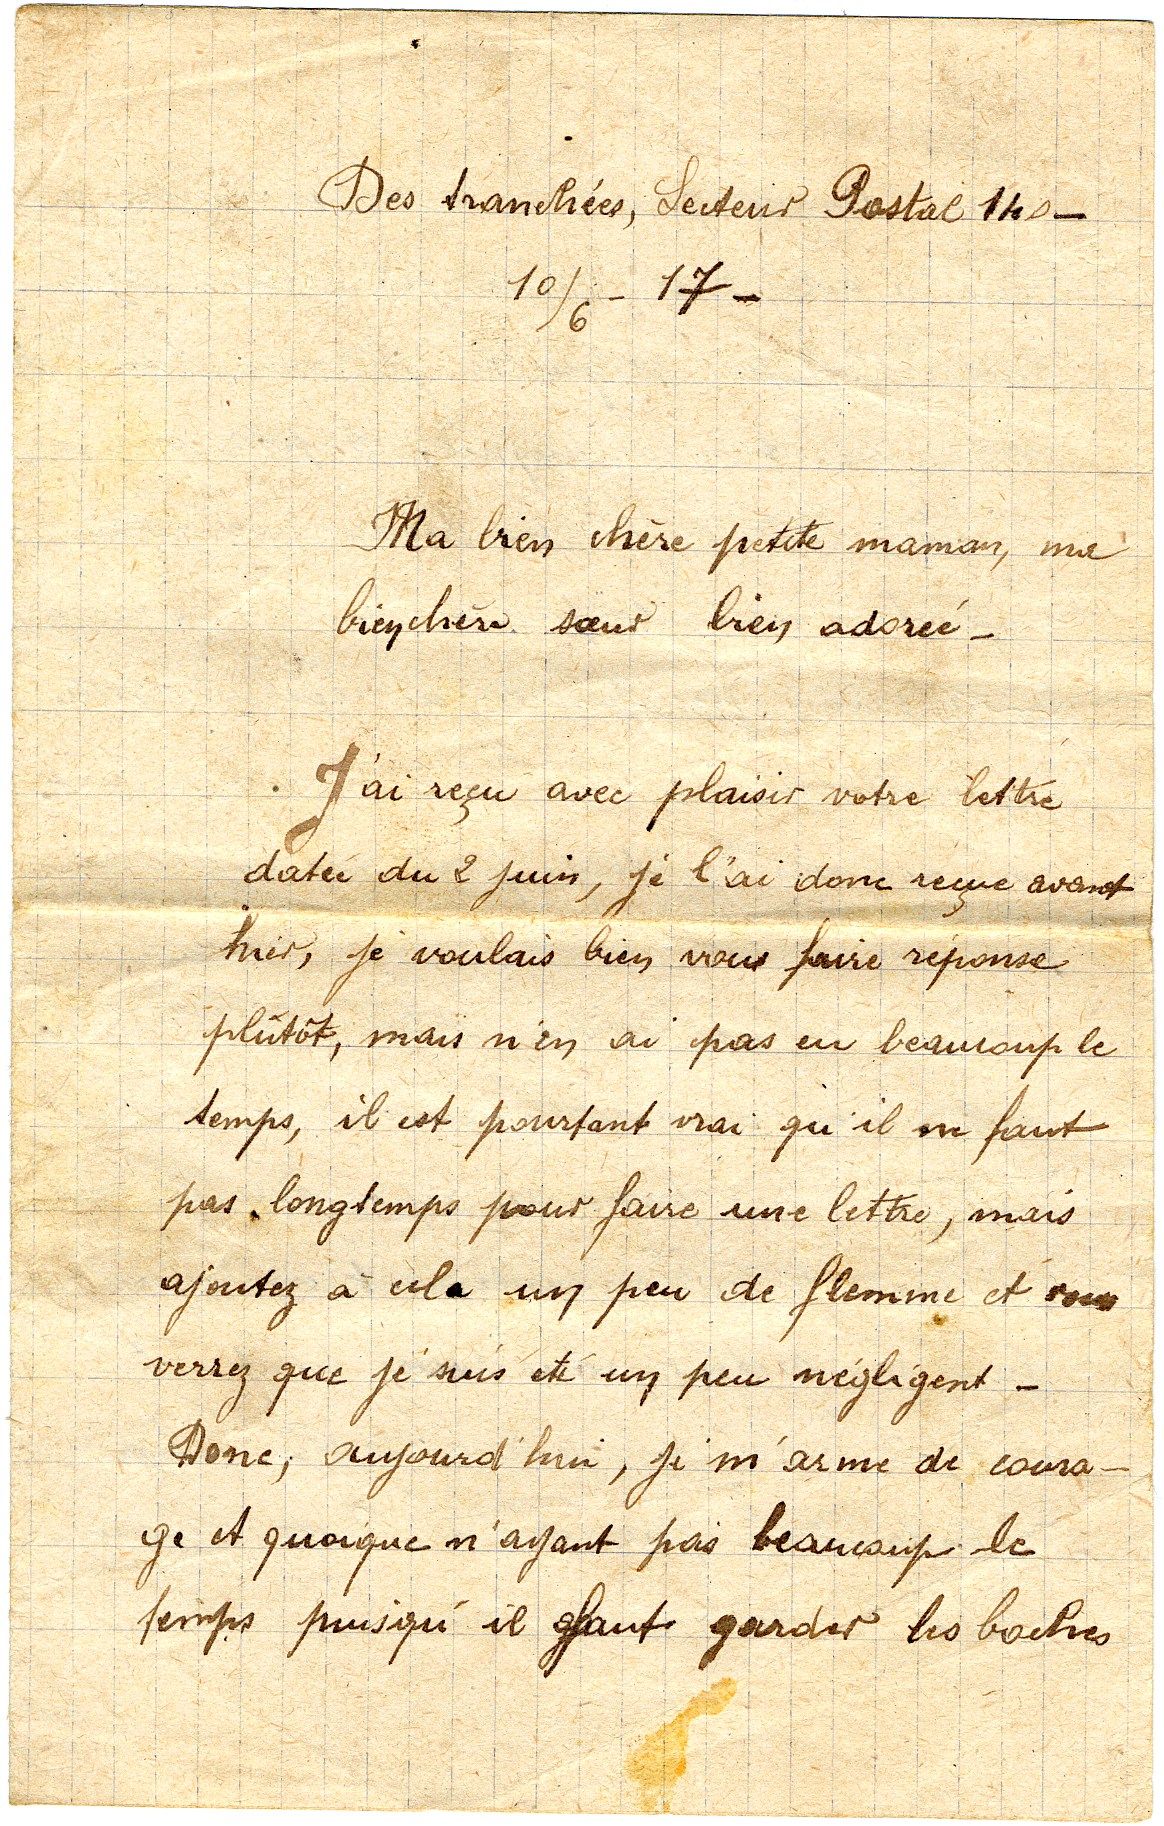 Des tranchées, Secteur Postal 140 —
10/6 - 17 —
Ma bien chère petite maman, ma
bien chère sœur bien adorée —
J'ai reçu avec plaisir votre lettre
datée du 2 juin, je l'ai donc reçue avant
hier, je voulais bien vous faire réponse
plûtôt, mais n'en ai pas eu beaucoup le
temps, il est pourtant vrai qu'il ne faut
pas longtemps pour faire une lettre, mais
ajoutez à cela un peu de flemme et vous
verrez que je suis été un peu négligent —
Donc, aujourd'hui, je m'arme de coura-
ge et quoique n'ayant pas beaucoup le
temps puisqu'il faut garder les boches